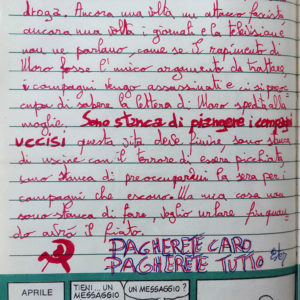 droga. Ancora una volta, un attacco fascista,
ancora una volta i giornali e la televisione
non ne parlano, come se il rapimento di
Moro fosse l'unico argomento da trattare,
i compagni vengo assassinati e ci si preoc
cupa di sapere la lettera di Moro spedita alla
moglie. Sono stanca di piangere i compagni
uccisi questa vita deve finire, sono stanca
di uscire con il terrore di essere picchiata,
sono stanca di preoccuparmi la sera per i
compagni che escono. Una cosa non
sono stanca di fare, voglio urlare finquan
do avrò il fiato.
PAGHERETE CARO
PAGHERETE TUTTO
APRILE
TIENI... UN
MESSAGGIO
UN MESSAGGIO?